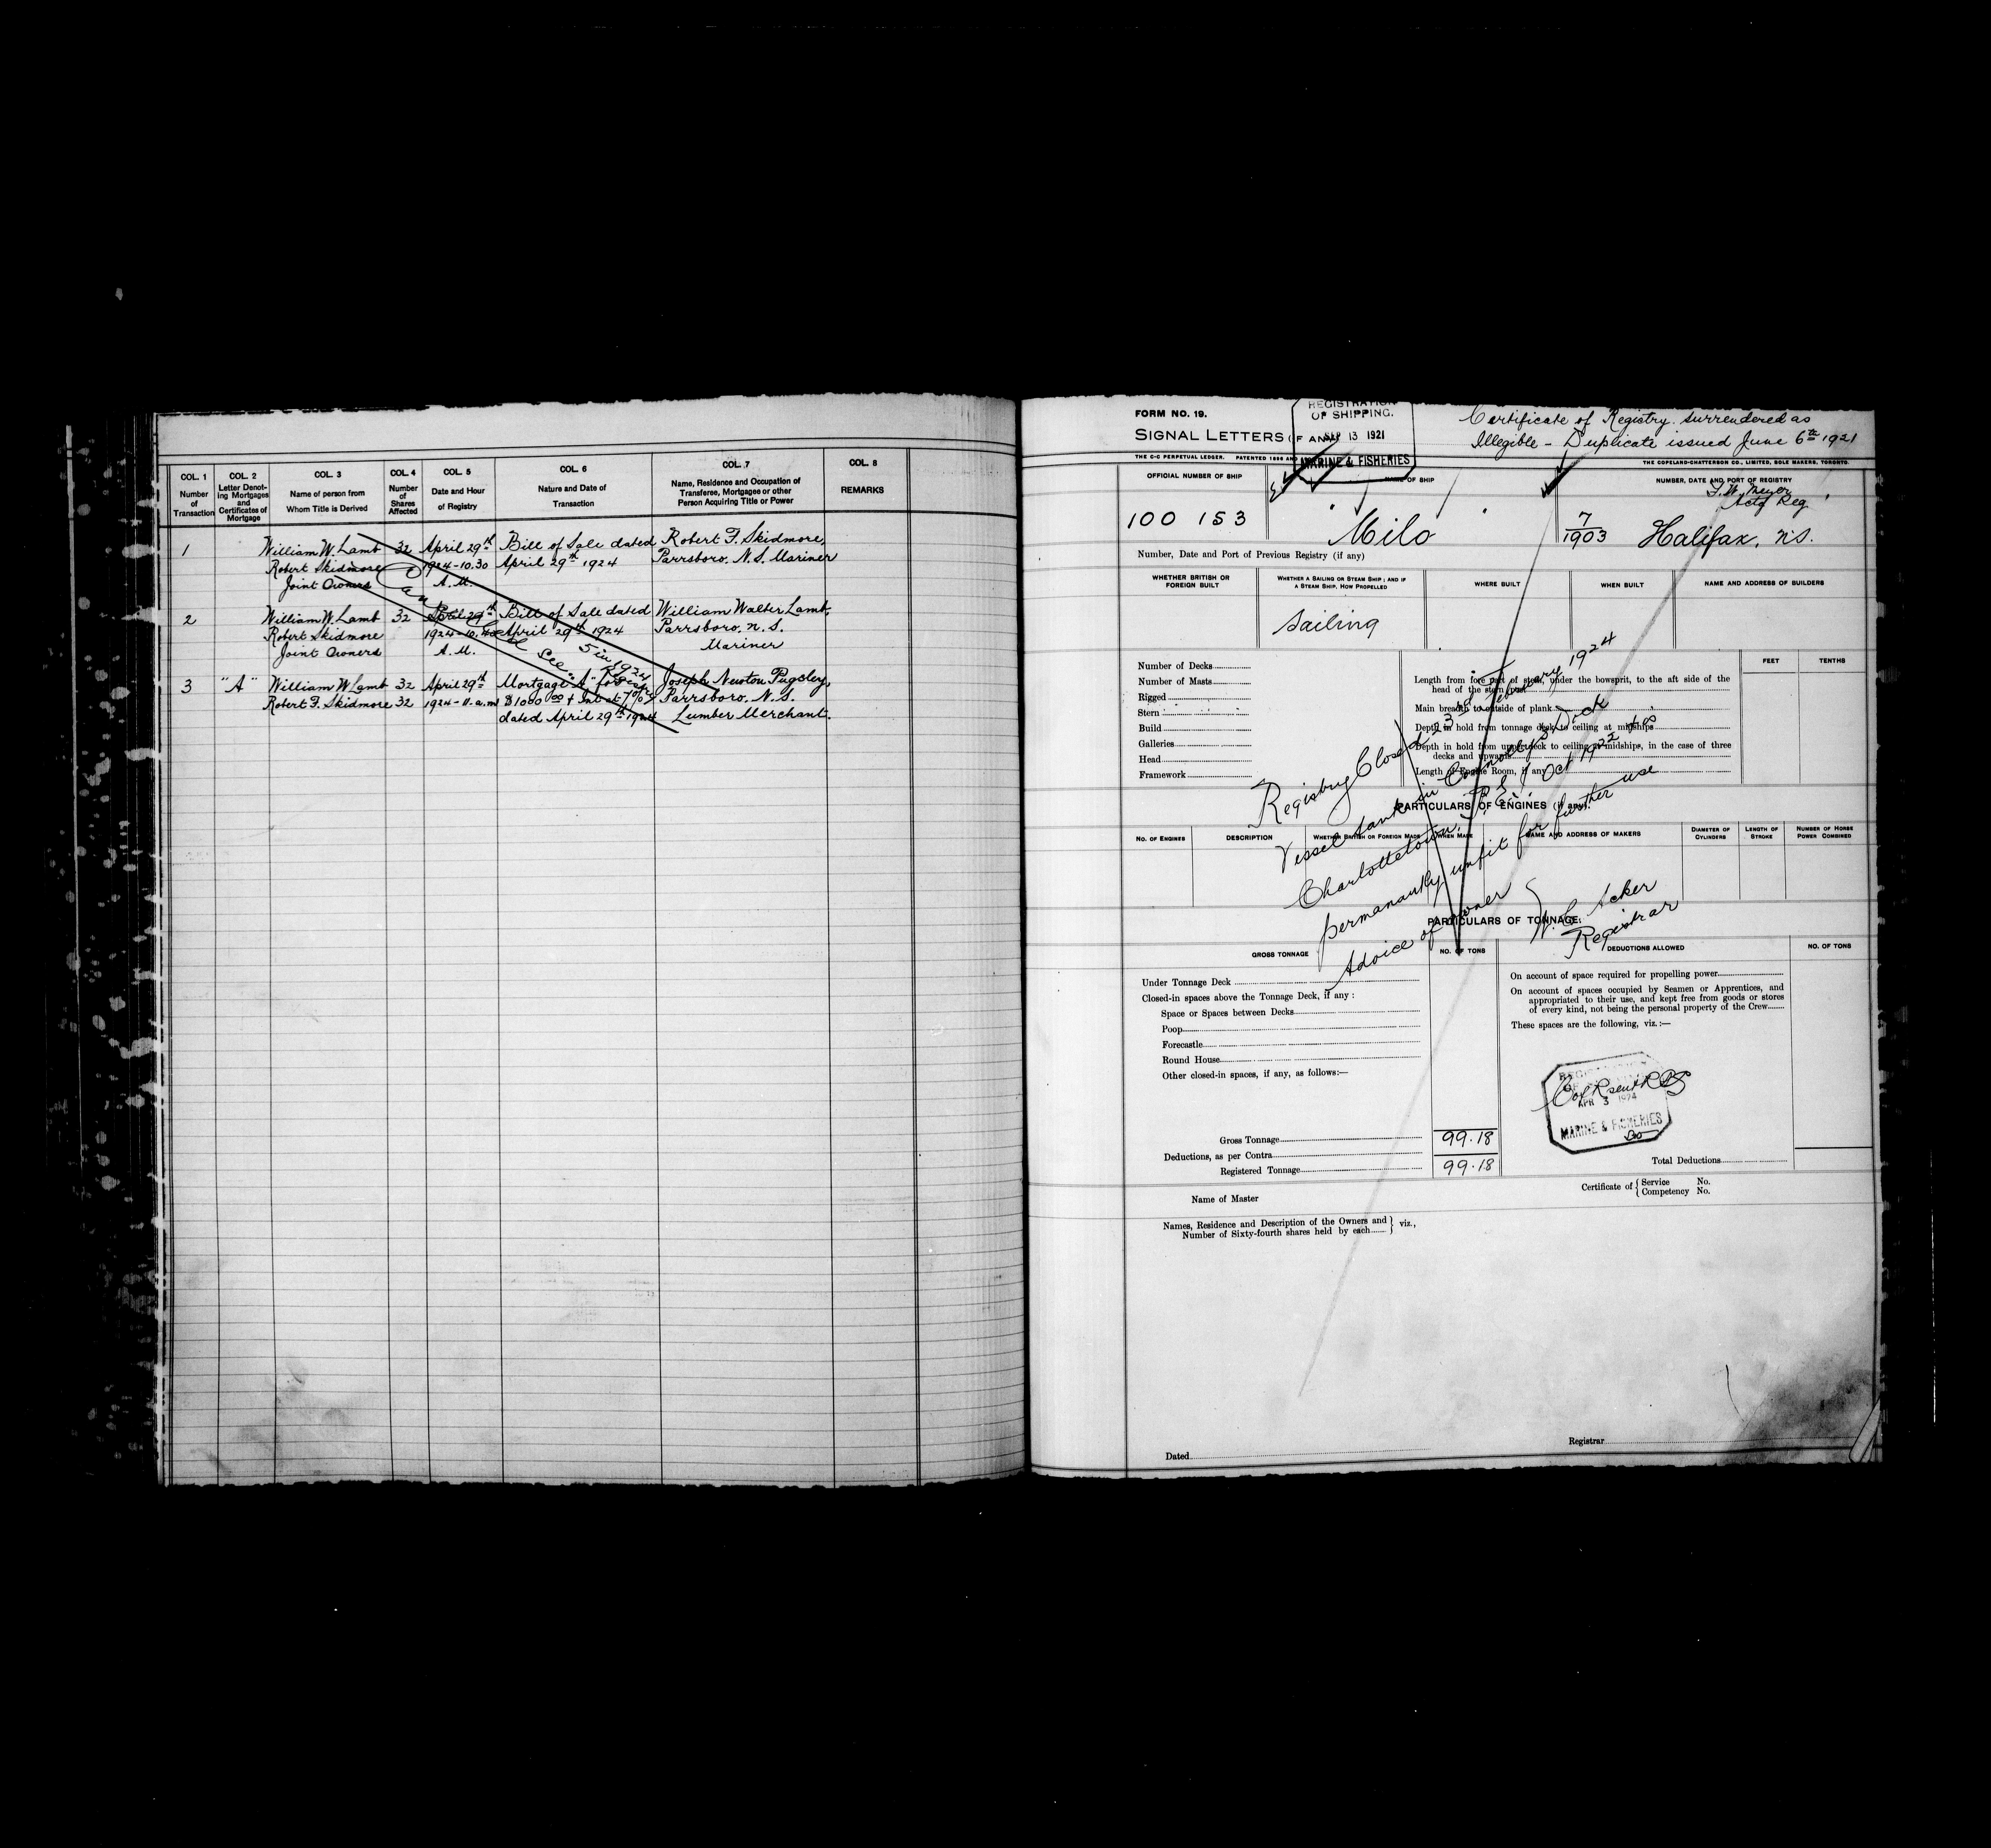 COL. 1
Number
of
Transaction
COL. 2
Letter Denot-
ing Mortgages
and
Certificates of
Mortgage
COL. 3
Name of person from
Whom Title is Derived
COL. 4
Number
of
Shares
Affected
COL. 5
Date and Hour
of Registry
COL. 6
Nature and Date of
Transaction
COL. 7
Name, Residence and Occupation of
Transferee, Mortgagee or other
Person Acquiring Title or Power
COL. 8
REMARKS
1 William W. Lamb 32 April 29th Bill of Sale dated Robert F. Skidmore,
Robert Skidmore 1924-10.30 April 29th 1924 Parrsboro, N.S. Mariner
Joint Owners A.M.
2 William W. Lamb 32 April 29th Bill of Sale dated William Walter Lamb,
Robert Skidmore 1924-10.40 April 29th 1924 Parrsboro, n.S.
Joint Owners A.M. Mariner
3 "A" William W Lamb 32 April 29th Mortgage "A" for Joseph Newton Pugsley,
Robert F. Skidmore 32 1924-11.a.m $1000 00 + Int at 7% Parrsboro, N.S.
dated April 29th 1924 Lumber Merchant.
See 5 in 1924
Registry
FORM NO. 19.
SIGNAL LETTERS (IF ANY)
REGISTRATION
OF SHIPPING.
SEP 13 1921
MARINE & FISHERIES
Certificate of Registry surrendered as
Illegible - Duplicate issued June 6th 1921
THE C-C PERPETUAL LEDGER. PATENTED 1896 AND
THE COPELAND-CHATTERSON CO., LIMITED, SOLE MAKERS, TORONTO.
OFFICIAL NUMBER OF SHIP
NAME OF SHIP
NUMBER, DATE AND PORT OF REGISTRY
F. W. Meyer
Actg Reg.
100 153
"Milo"
7/1903 Halifax, n.S.
Number, Date and Port of Previous Registry (if any)
WHETHER BRITISH OR
FOREIGN BUILT
WHETHER A SAILING OR STEAM SHIP; AND IF
A STEAM SHIP, HOW PROPELLED
WHERE BUILT
WHEN BUILT
NAME AND ADDRESS OF BUILDERS
Sailing
Number of Decks
Number of Masts
Rigged
Stern
Build
Galleries
Head
Framework
FEET
TENTHS
Length from fore part of stem, under the bowsprit, to the aft side of the
head of the stern post
Main breadth to outside of plank
Depth in hold from tonnage deck to ceiling at midships
Depth in hold from upper deck to ceiling at midships, in the case of three
decks and upwards
Length of Engine Room, if any
Registry Closed 23rd February 1924
Vessel sank in Connolly's Dock
Charlottetown, P.E.I Oct 1922
permanantly unfit for further use
Advice of owner
W. C. Acker
Registrar
PARTICULARS OF ENGINES (if any).
NO. OF ENGINES
DESCRIPTION
WHETHER BRITISH OR FOREIGN MADE
WHEN MADE
NAME AND ADDRESS OF MAKERS
DIAMETER OF
CYLINDERS
LENGTH OF
STROKE
NUMBER OF HORSE
POWER COMBINED
PARTICULARS OF TONNAGE.
GROSS TONNAGE
NO. OF TONS
DEDUCTIONS ALLOWED
NO. OF TONS
Under Tonnage Deck
Closed-in spaces above the Tonnage Deck, if any :
Space or Spaces between Decks
Poop
Forecastle
Round House
Other closed-in spaces, if any, as follows:—
Gross Tonnage 99.18
Deductions, as per Contra
Registered Tonnage 99.18
On account of space required for propelling power
On account of spaces occupied by Seamen or Apprentices, and
appropriated to their use, and kept free from goods or stores
of every kind, not being the personal property of the Crew
These spaces are the following, viz.:—
APR 3 1924
MARINE & FISHERIES
Total Deductions
Name of Master
Certificate of { Service No.
Competency No.
Names, Residence and Description of the Owners and } viz.,
Number of Sixty-fourth shares held by each
Dated
Registrar